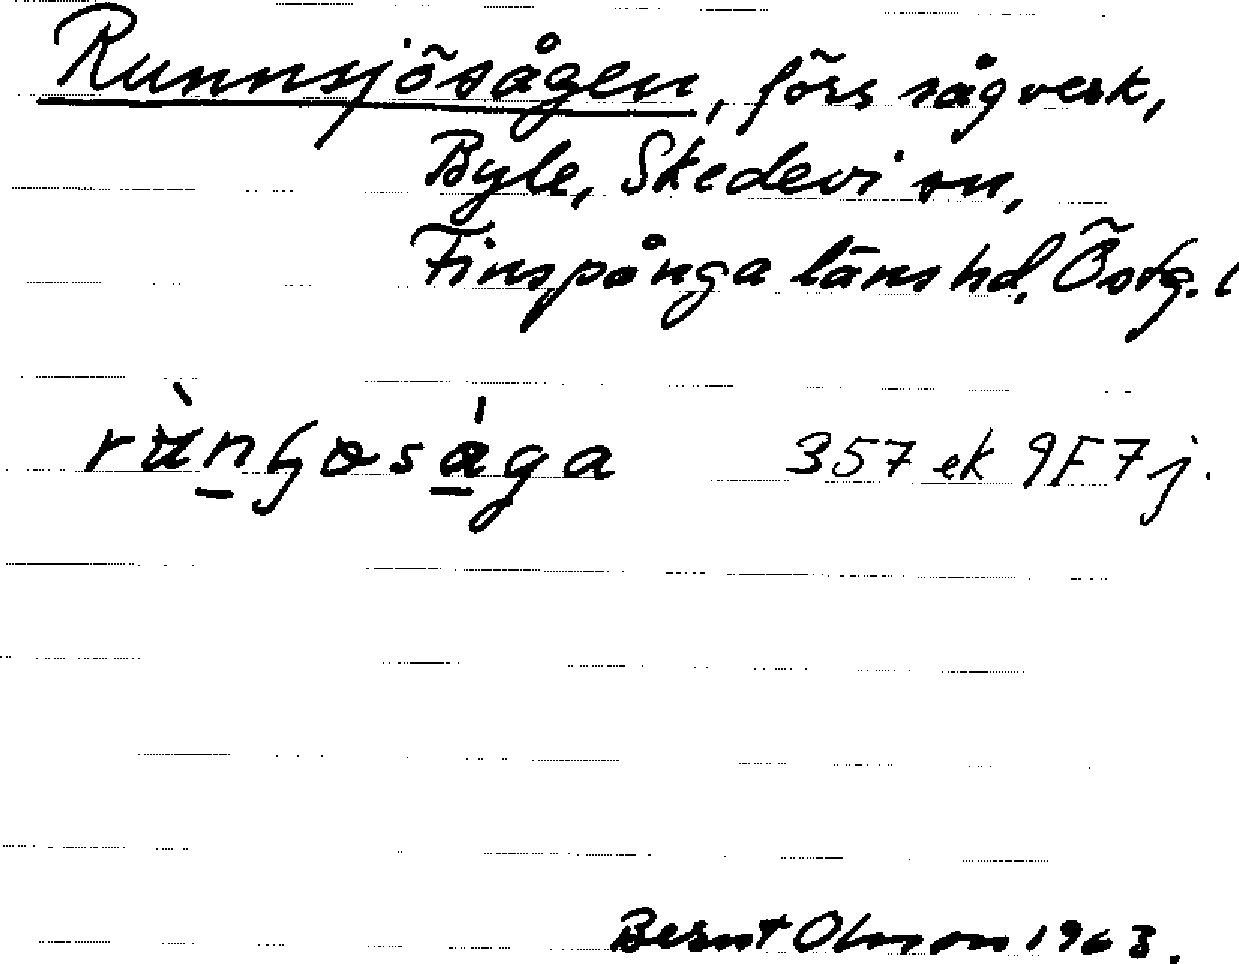 Runnsjösågen, förs sågverk,
Byle, Skedevi sn,
Finspånga läns hd, Östg. l
357 ek 9F7j.
Bernt Olsson 1963.